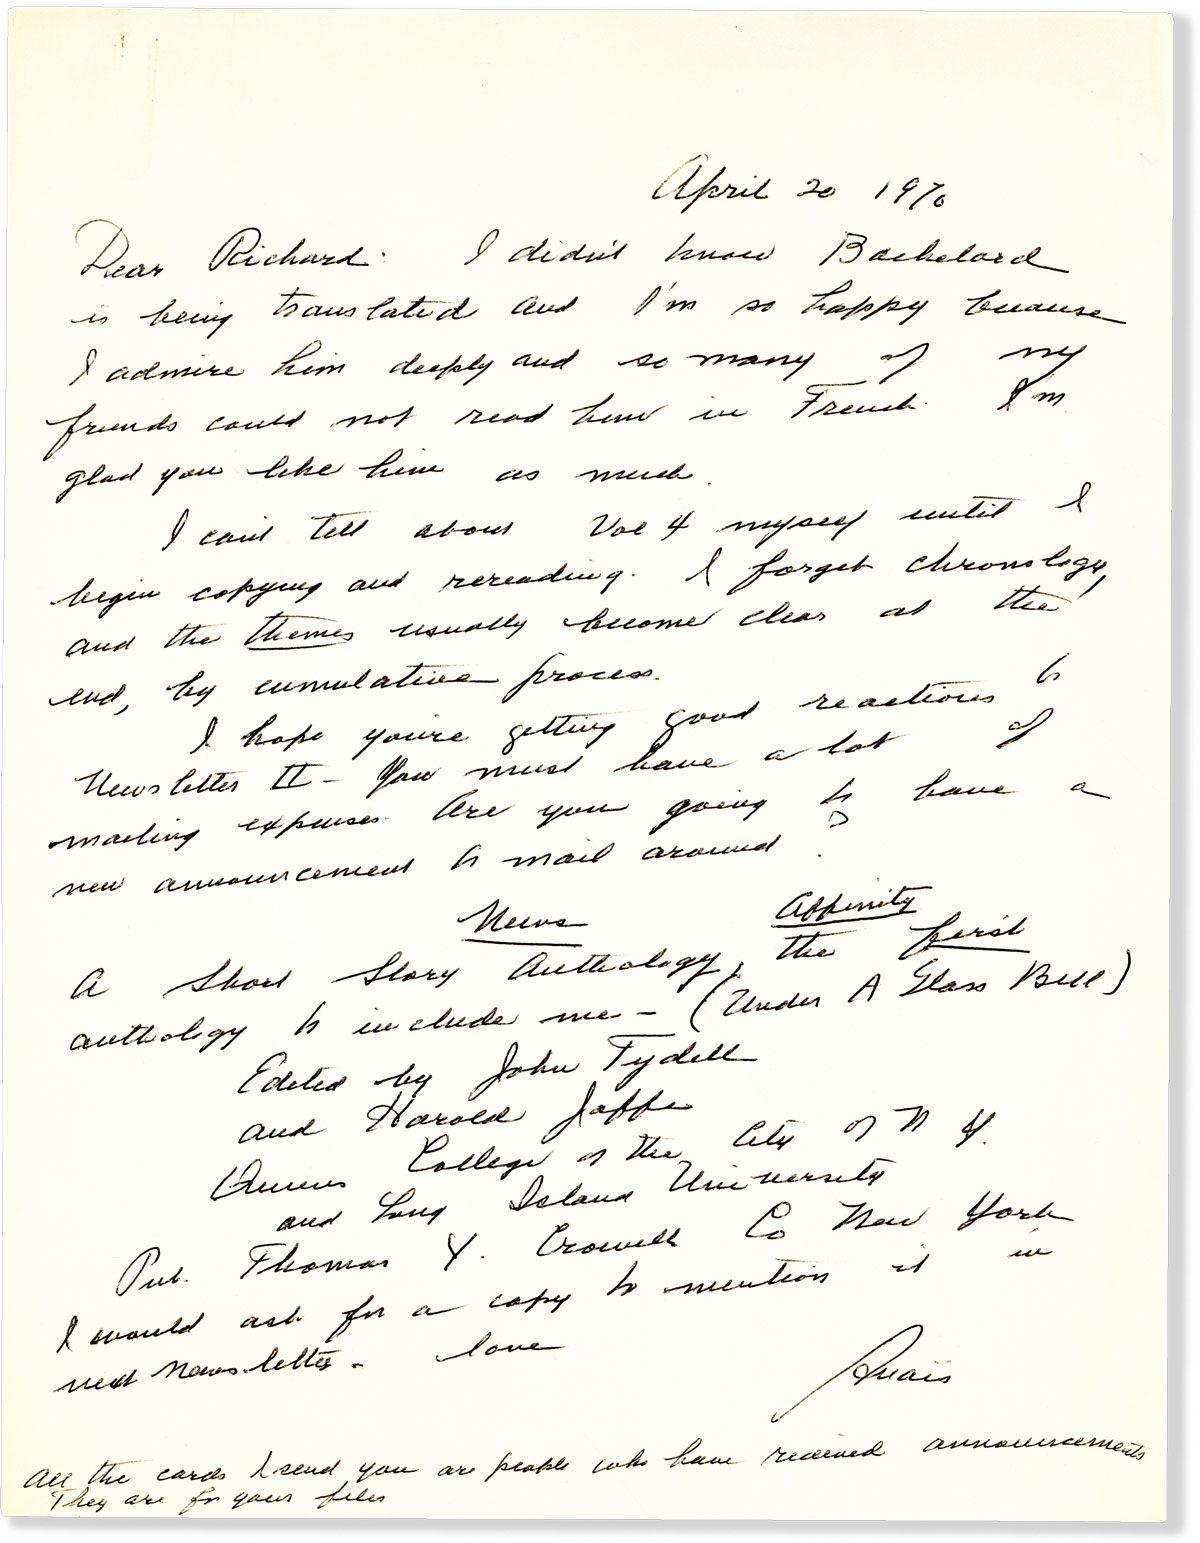 April 20 1970
Dear Richard: I didn't know Bachelard
is being translated and I'm so happy because
I admire him deeply and so many of my
friends could not read him in French. I'm
glad you like him as much.
I can't tell about Vol 4 myself until I
begin copying and rereading. I forget chronology,
and the themes usually become clear at the
end, by cumulative process.
I hope you're getting good reactions to
Newsletter II - You must have a lot of
mailing expenses. Are you going to have a
new announcement to mail around ?
News
Affinity
A Short Story Anthology, the first
anthology to include me - (Under A Glass Bell)
Edited by John Tydell
and Harold Jaffe
Queens College of the City of N Y.
and Long Island University
Pub. Thomas Y. Crowell Co New York
I would ask for a copy to mention it in
next Newsletter - love
Anaïs
All the cards I send you are people who have received announcements
They are for your files